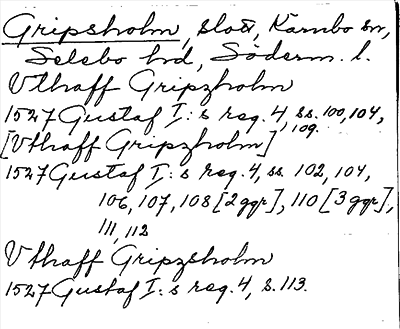 Gripsholm, slott, Kärnbo sn,
Selebo hd, Söderm. l.
Vthaff Gripzholm
1527 Gustaf I:s reg. 4, ss. 100, 104,
109.
[Vthaff Gripzholm]
1527 Gustaf I:s reg. 4, ss. 102, 104,
106, 107, 108 [2 ggr], 110 [3 ggr],
111, 112
Vthaff Gripzsholm
1527 Gustaf I:s reg. 4, s. 113.